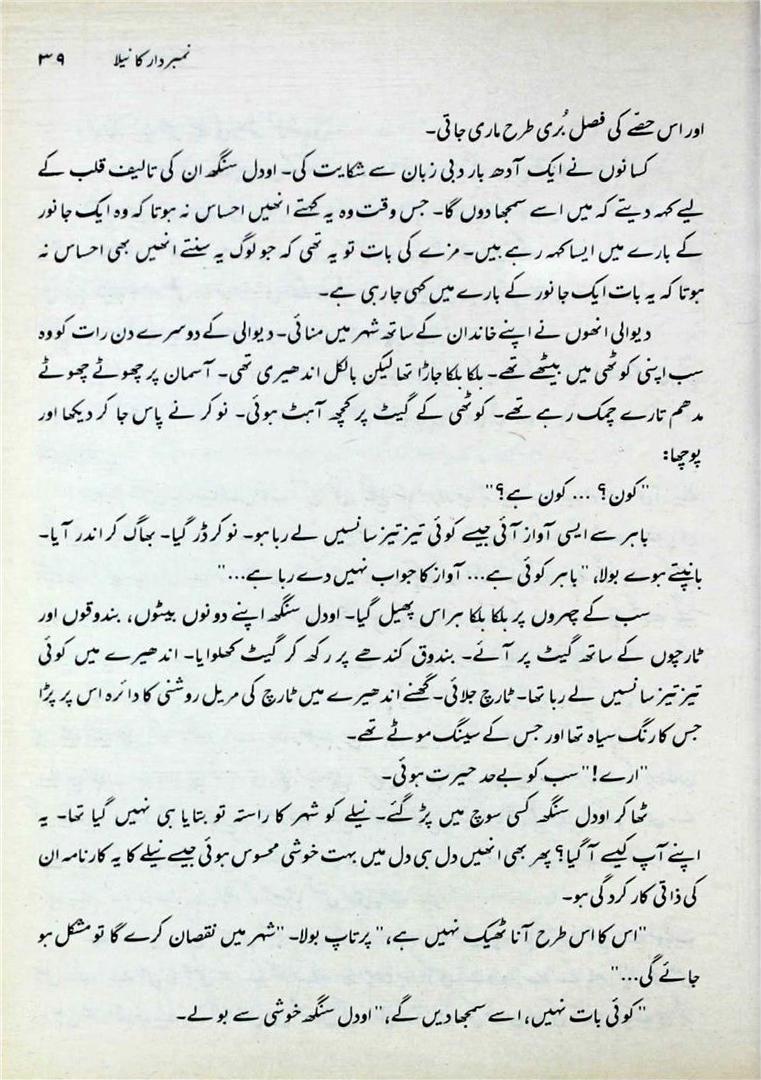 نمبردار کا نیلا ۳۹
اور اس حصّے کی فصل بُری طرح ماری جاتی۔
کسانوں نے ایک آدھ بار دبی زبان سے شکایت کی۔ اودل سنگھ ان کی تالیف قلب کے
لیے کہہ دیتے کہ میں اسے سمجھا دوں گا۔ جس وقت وہ یہ کہتے انھیں احساس نہ ہوتا کہ وہ ایک جانور
کے بارے میں ایسا کہہ رہے ہیں۔ مزے کی بات تو یہ تھی کہ جو لوگ یہ سنتے انھیں بھی احساس نہ
ہوتا کہ یہ بات ایک جانور کے بارے میں کہی جا رہی ہے۔
دیوالی انھوں نے اپنے خاندان کے ساتھ شہر میں منائی۔ دیوالی کے دوسرے دن رات کو وہ
سب اپنی کوٹھی میں بیٹھے تھے۔ ہلکا ہلکا جاڑا تھا لیکن بالکل اندھیری تھی۔ آسمان پر چھوٹے چھوٹے
مدھم تارے چمک رہے تھے۔ کوٹھی کے گیٹ پر کچھ آہٹ ہوئی۔ نوکر نے پاس جا کر دیکھا اور
پوچھا:
"کون؟ ... کون ہے؟"
باہر سے ایسی آواز آئی جیسے کوئی تیز تیز سانسیں لے رہا ہو۔ نوکر ڈر گیا۔ بھاگ کر اندر آیا۔
ہانپتے ہوے بولا، "باہر کوئی ہے... آواز کا جواب نہیں دے رہا ہے..."
سب کے چہروں پر ہلکا ہلکا ہراس پھیل گیا۔ اودل سنگھ اپنے دونوں بیٹوں، بندوقوں اور
ٹارچوں کے ساتھ گیٹ پر آئے۔ بندوق کندھے پر رکھ کر گیٹ کھلوایا۔ اندھیرے میں کوئی
تیز تیز سانسیں لے رہا تھا۔ ٹارچ جلائی۔ گھنے اندھیرے میں ٹارچ کی مریل روشنی کا دائرہ اس پر پڑا
جس کا رنگ سیاہ تھا اور جس کے سینگ موٹے تھے۔
"ارے!" سب کو بےحد حیرت ہوئی۔
ٹھاکر اودل سنگھ کسی سوچ میں پڑ گئے۔ نیلے کو شہر کا راستہ تو بتایا ہی نہیں گیا تھا۔ یہ
اپنے آپ کیسے آ گیا؟ پھر بھی انھیں دل ہی دل میں بہت خوشی محسوس ہوئی جیسے نیلے کا یہ کارنامہ ان
کی ذاتی کارکردگی ہو۔
"اس کا اس طرح آنا ٹھیک نہیں ہے،" پرتاپ بولا۔ "شہر میں نقصان کرے گا تو مشکل ہو
جائے گی..."
"کوئی بات نہیں، اسے سمجھا دیں گے،" اودل سنگھ خوشی سے بولے۔